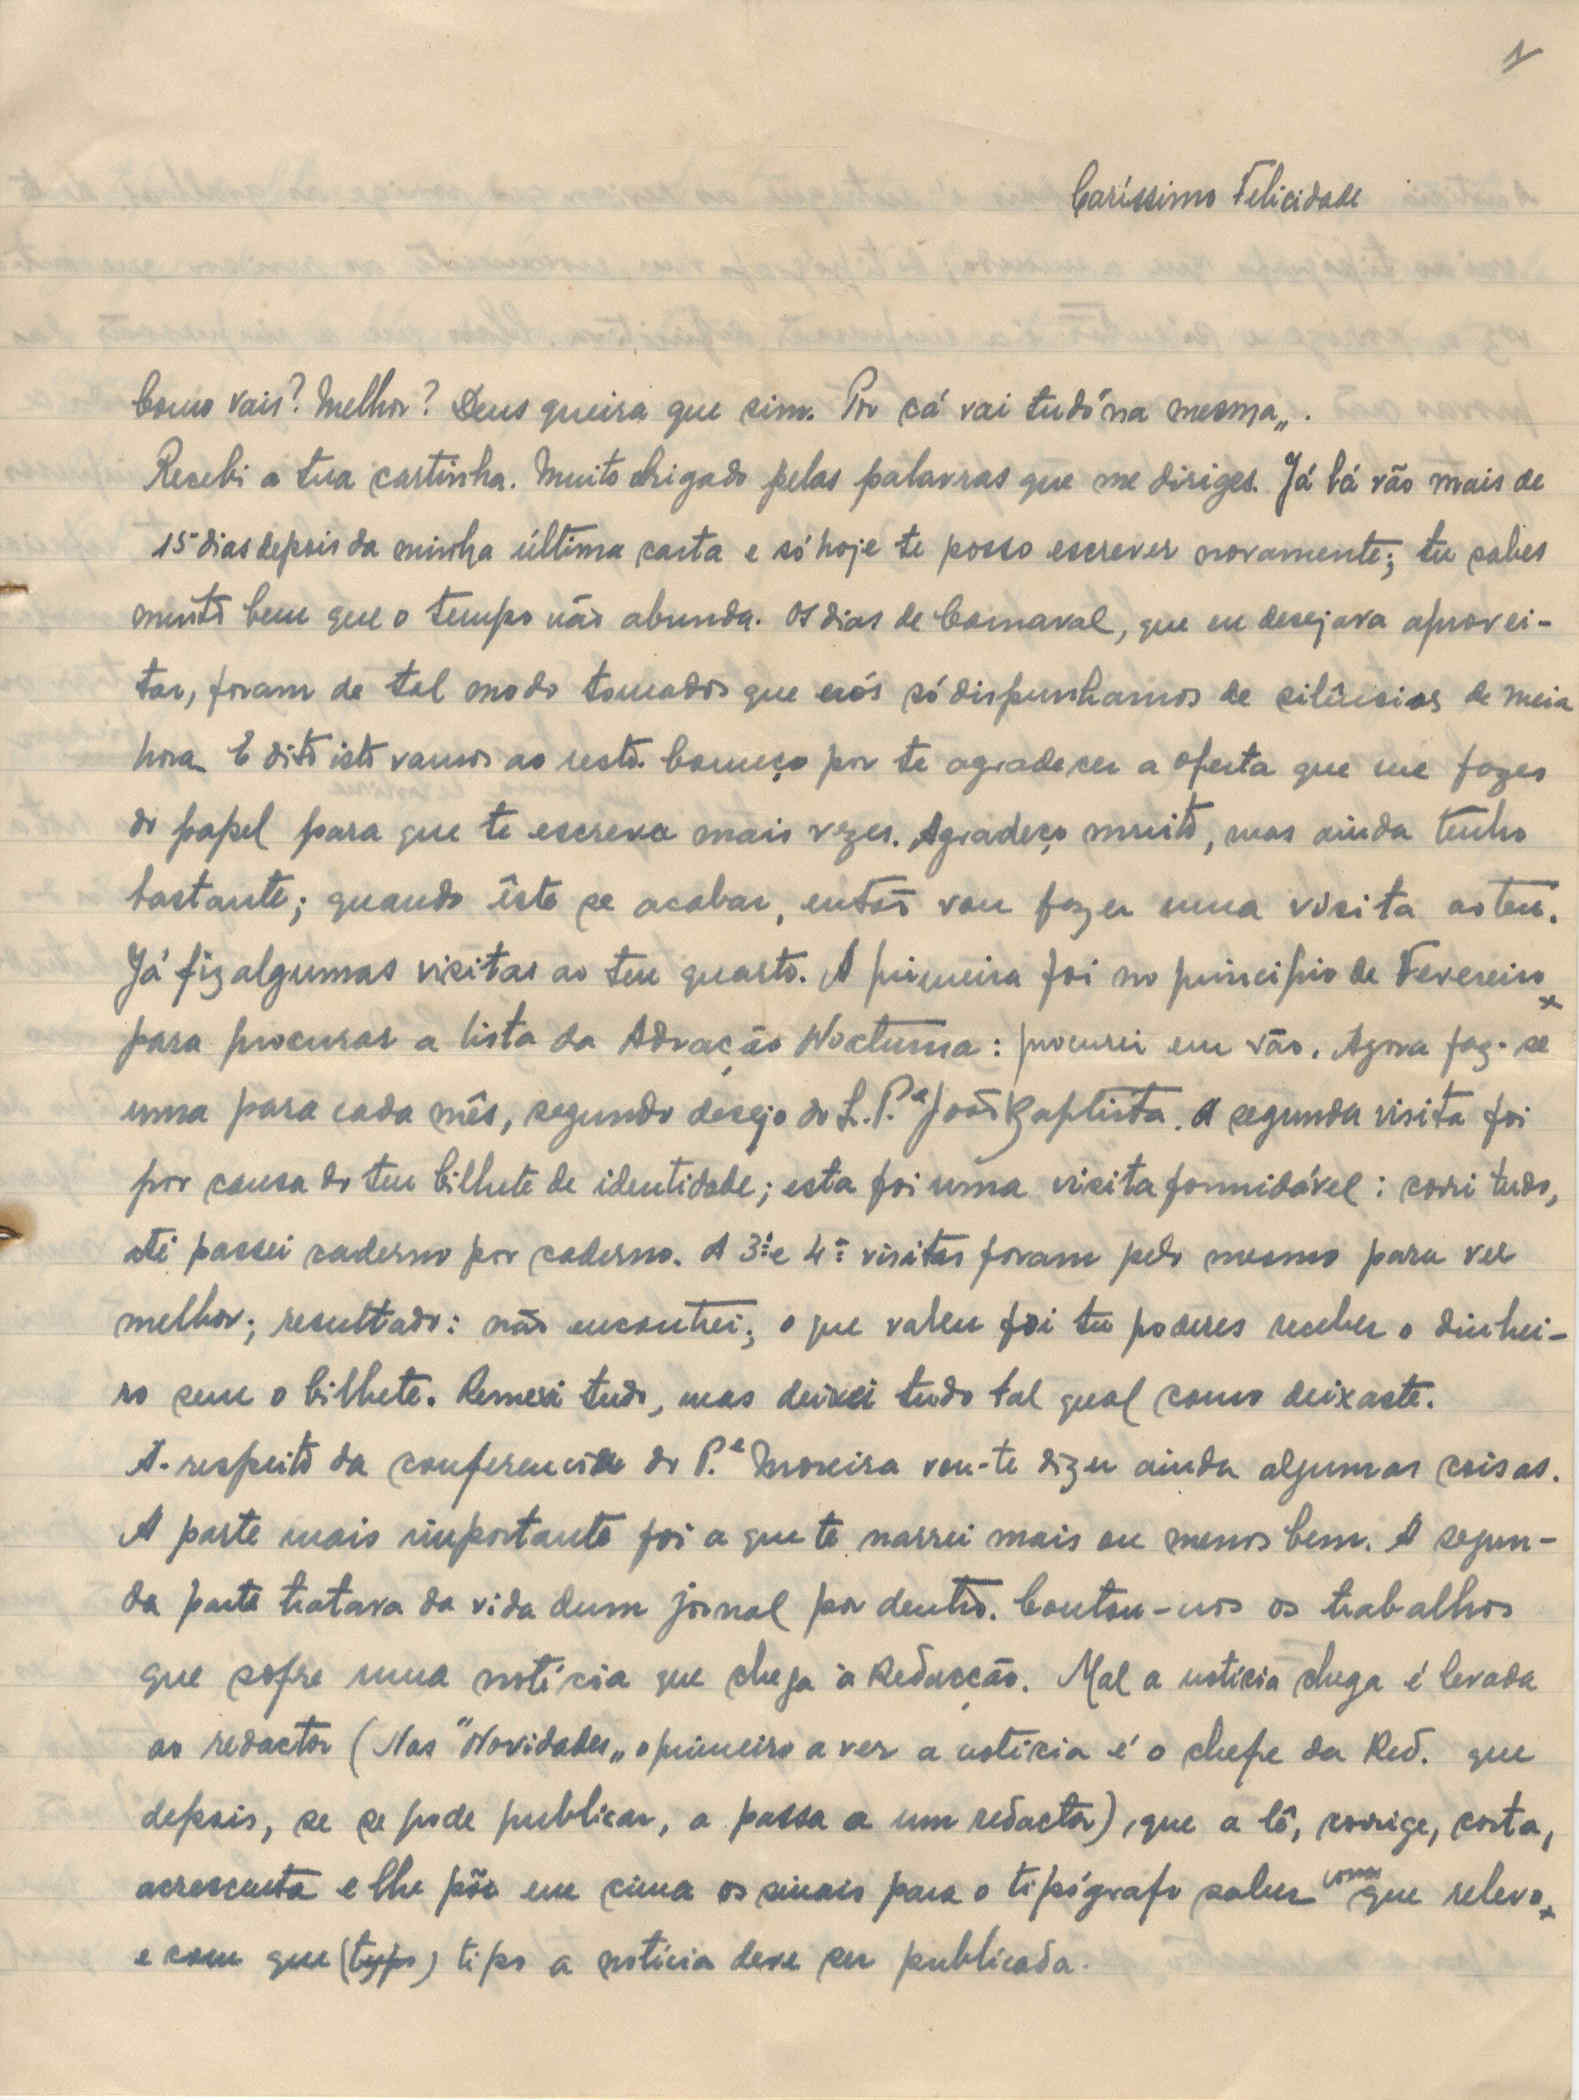 1
Caríssimo Felicidade
Como vais? Melhor? Deus queira que sim. Por cá vai tudo "na mesma„.
Recebi a tua cartinha. Muito obrigado pelas palavras que me diriges. Já lá vão mais de
15 dias depois da minha última carta e só hoje te posso escrever novamente; tu sabes
muito bem que o tempo não abunda. Os dias de Carnaval, que eu desejava aprovei-
tar, foram de tal modo tomados que nós só dispunhamos de silêncios de meia
hora. E dito isto vamos ao resto. Começo por te agradecer a oferta que me fazes
do papel para que te escreva mais vezes. Agradeço muito, mas ainda tenho
bastante; quando êste se acabar, então vou fazer uma visita ao teu.
Já fiz algumas visitas ao teu quarto. A primeira foi no principio de Fevereiro
para procurar a lista da Adoração Nocturna: procurei em vão. Agora faz-se
uma para cada mês, segundo desejo do S. P.e João Baptista. A segunda visita foi
por causa do teu bilhete de identidade; esta foi uma visita formidável: corri tudo,
até passei caderno por caderno. A 3ª e 4ª visitas foram pelo mesmo para ver
melhor; resultado: não encontrei; o que valeu foi tu poderes receber o dinhei-
ro sem o bilhete. Remexi tudo, mas deixei tudo tal qual como deixaste.
A-respeito da conferencia do P.e Moreira vou-te dizer ainda algumas coisas.
A parte mais importante foi a que te narrei mais ou menos bem. A segun-
da parte tratava da vida dum jornal por dentro. Contou-nos os trabalhos
que sofre uma notícia que chega à Redacção. Mal a notícia chega é levada
ao redactor (Nas "Novidades„ o primeiro a ver a notícia é o chefe da Red. que
depois, se se pode publicar, a passa a um redactor), que a lê, corrige, corta,
acrescenta e lhe põe em cima os sinais para o tipógrafo saber com que relevo
e com que (typo) tipo a notícia deve ser publicada.